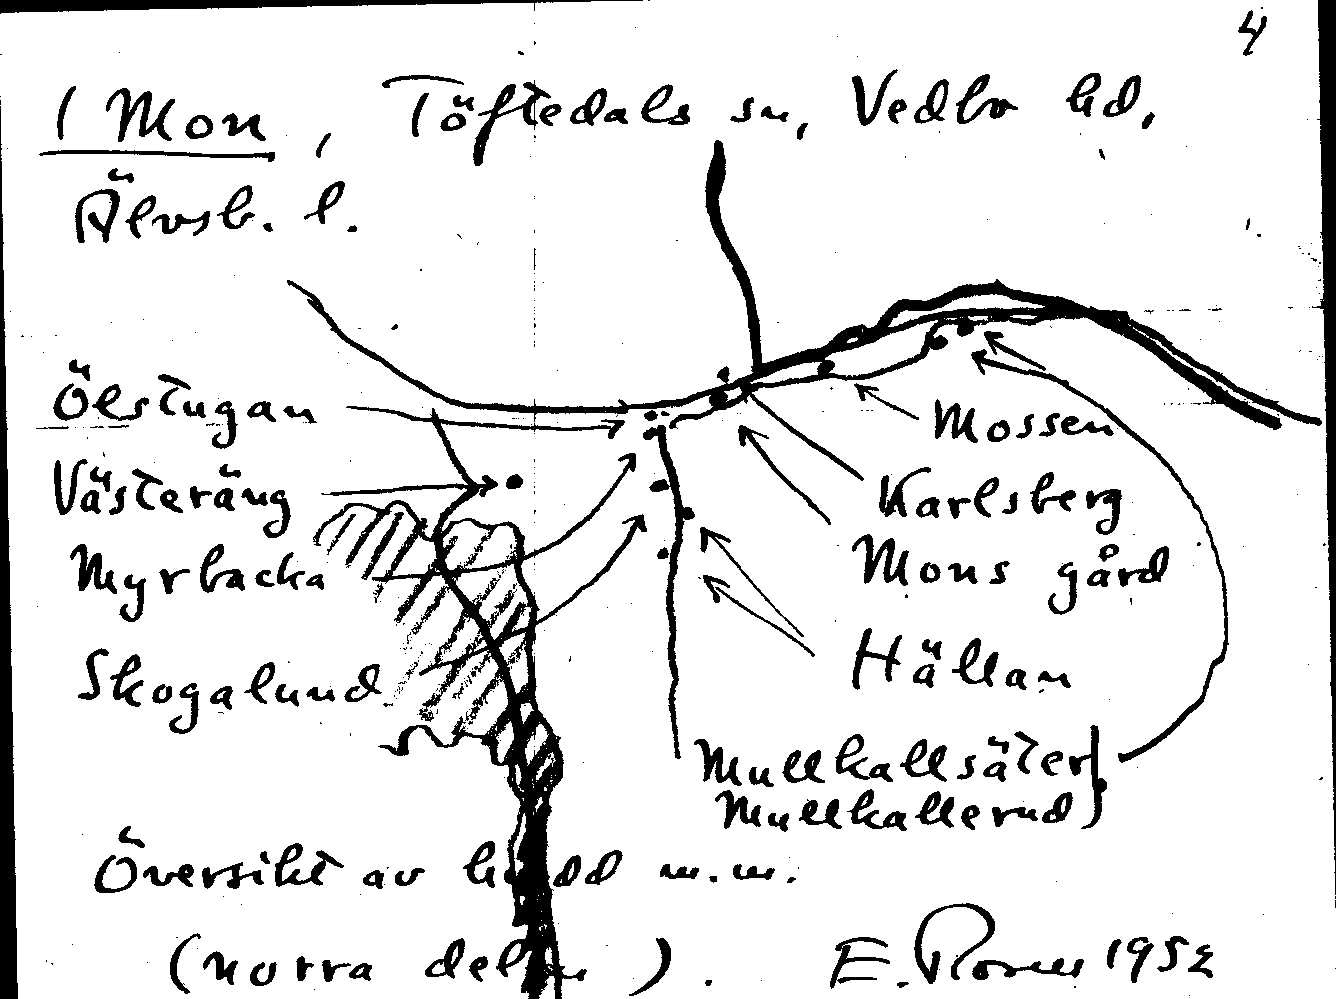 4
1 Mon, Töftedals sn, Vedbo hd,
Älvsb. l.
Ölstugan
Västeräng
Myrbacka
Skogalund
Mossen
Karlsberg
Mons gård
Hällan
Mullkallsäter
Mullkallerud
Översikt av m.m.
(norra delen).
E. 1952